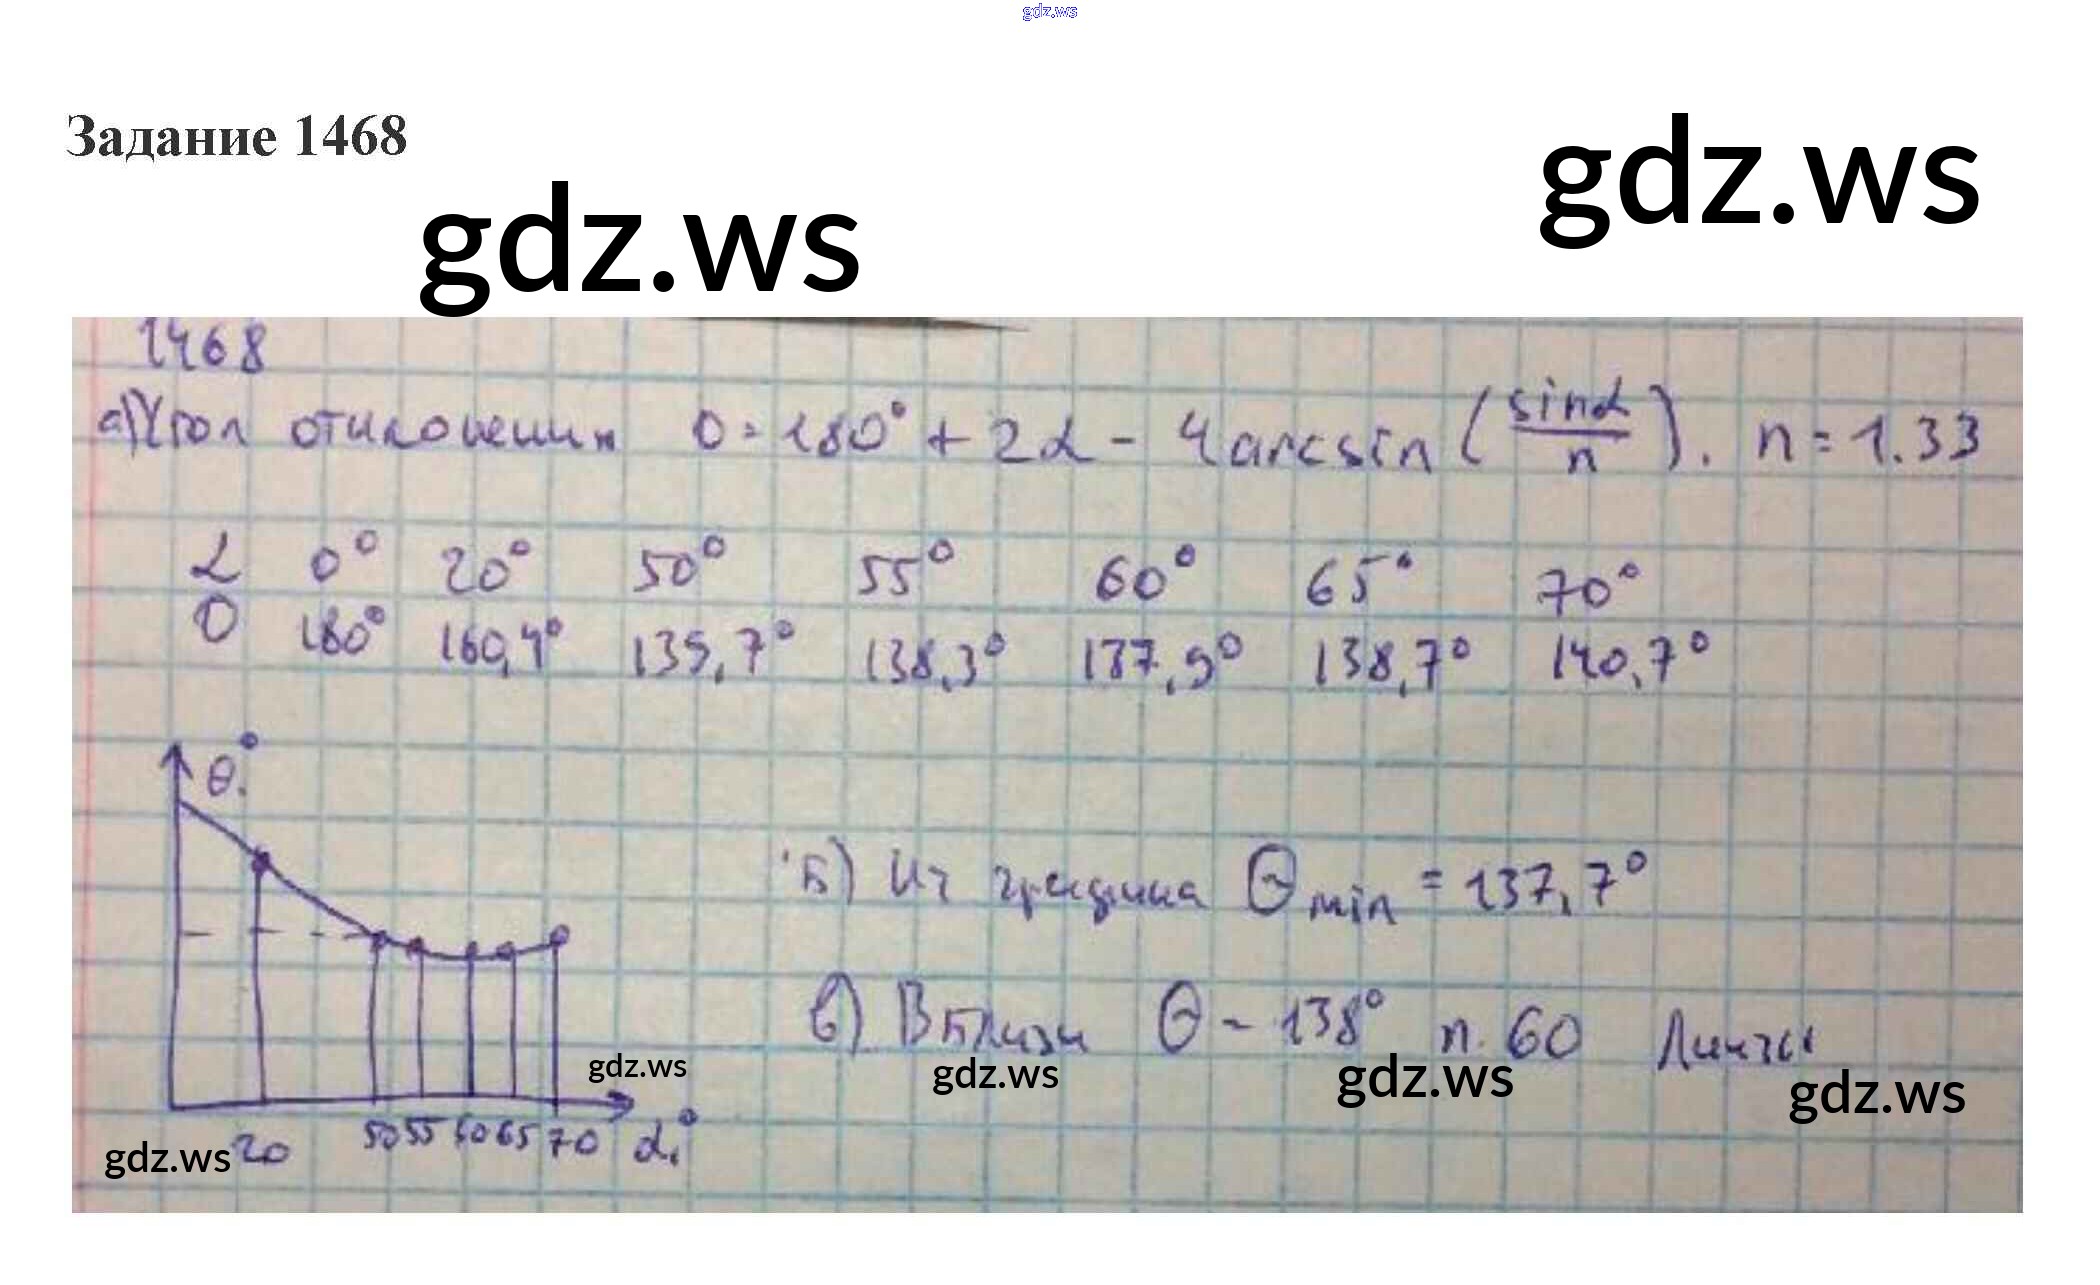 gdz.ws
Задание 1468
gdz.ws
gdz.ws
1468
а) Угол отклонения θ = 180° + 2α - 4 arcsin (sinα/n). n = 1.33
α 0° 20° 50° 55° 60° 65° 70°
θ 180° 160,4° 139,7° 138,3° 137,9° 138,7° 140,7°
θ,°
Б) Из графика θmin = 137,7°
в) Вблизи θ = 138° n. 60
gdz.ws
gdz.ws
gdz.ws
gdz.ws
20 50 55 60 65 70 α,°
gdz.ws